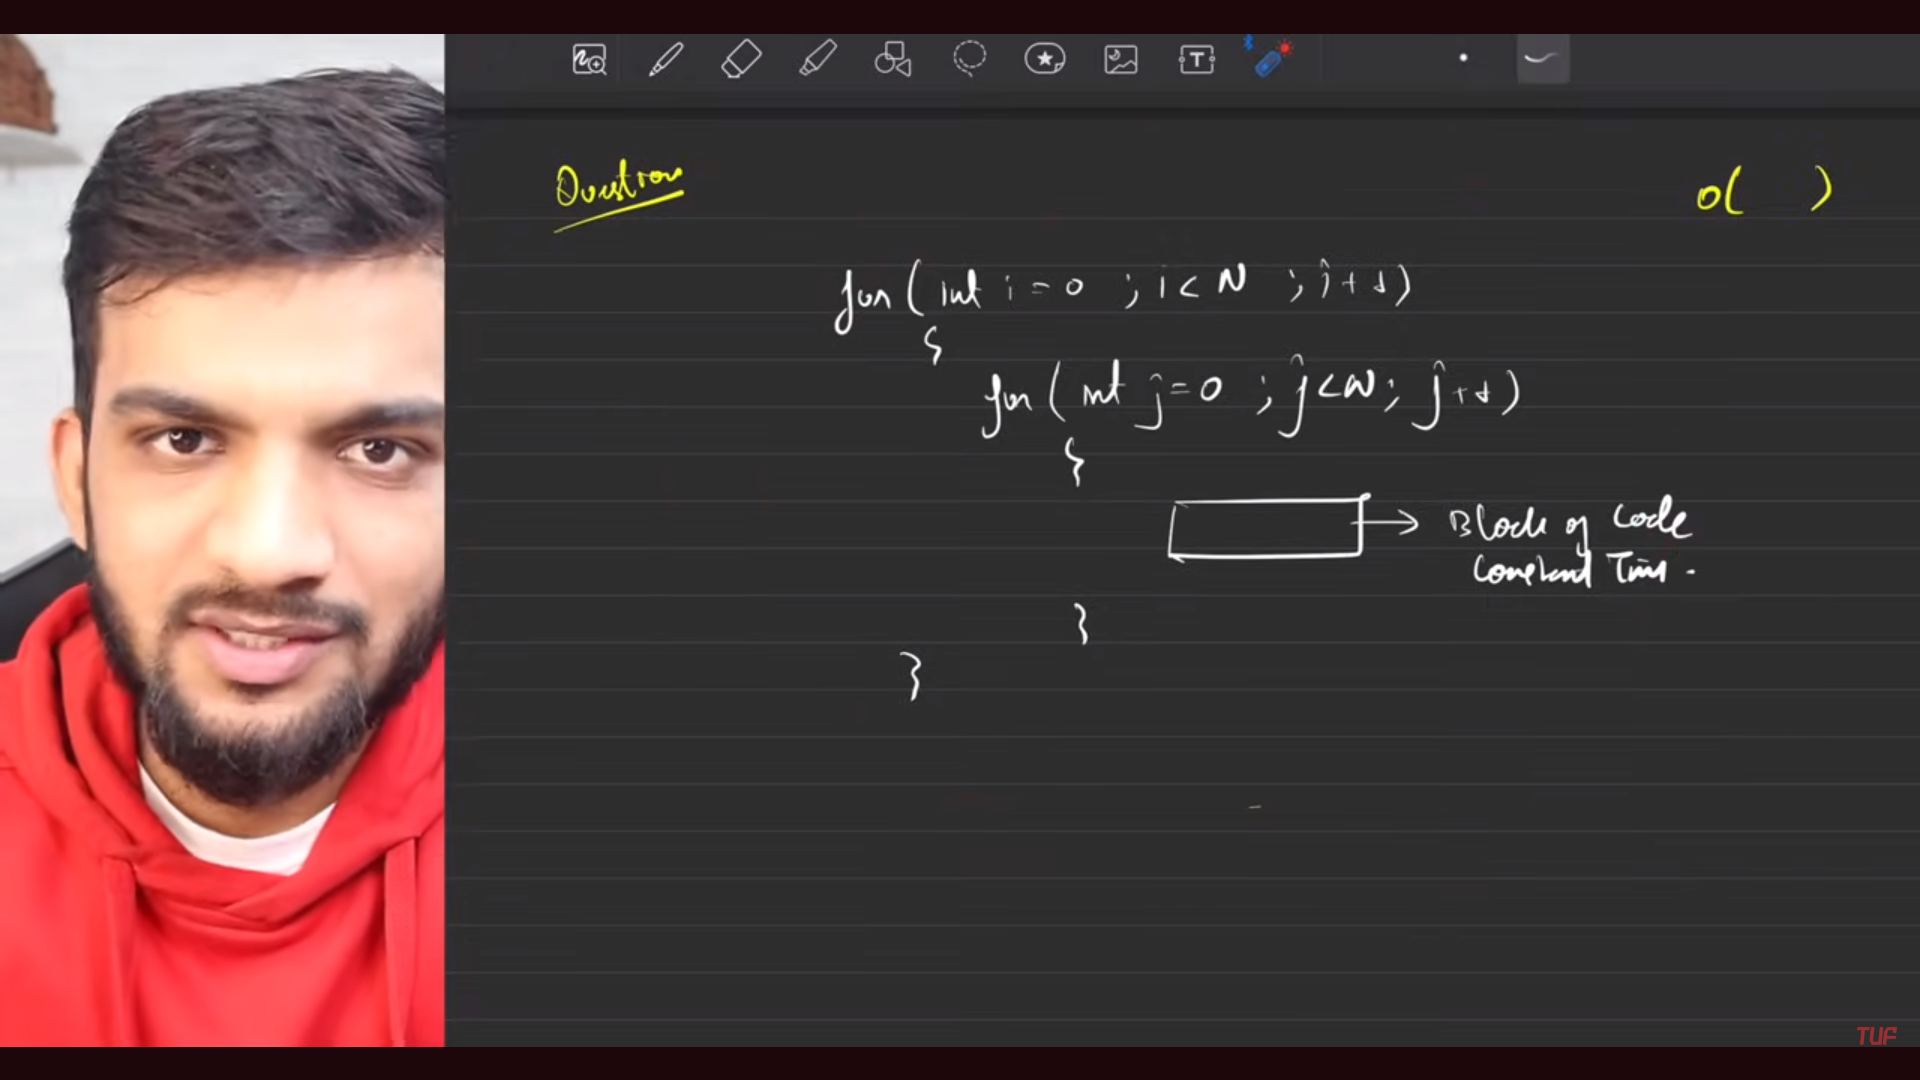 Question
O( )
for ( int i = 0 ; i < N ; i++ )
{
for ( int j = 0 ; j < N ; j++ )
{
Block of Code
Constant Time.
}
}
TUF